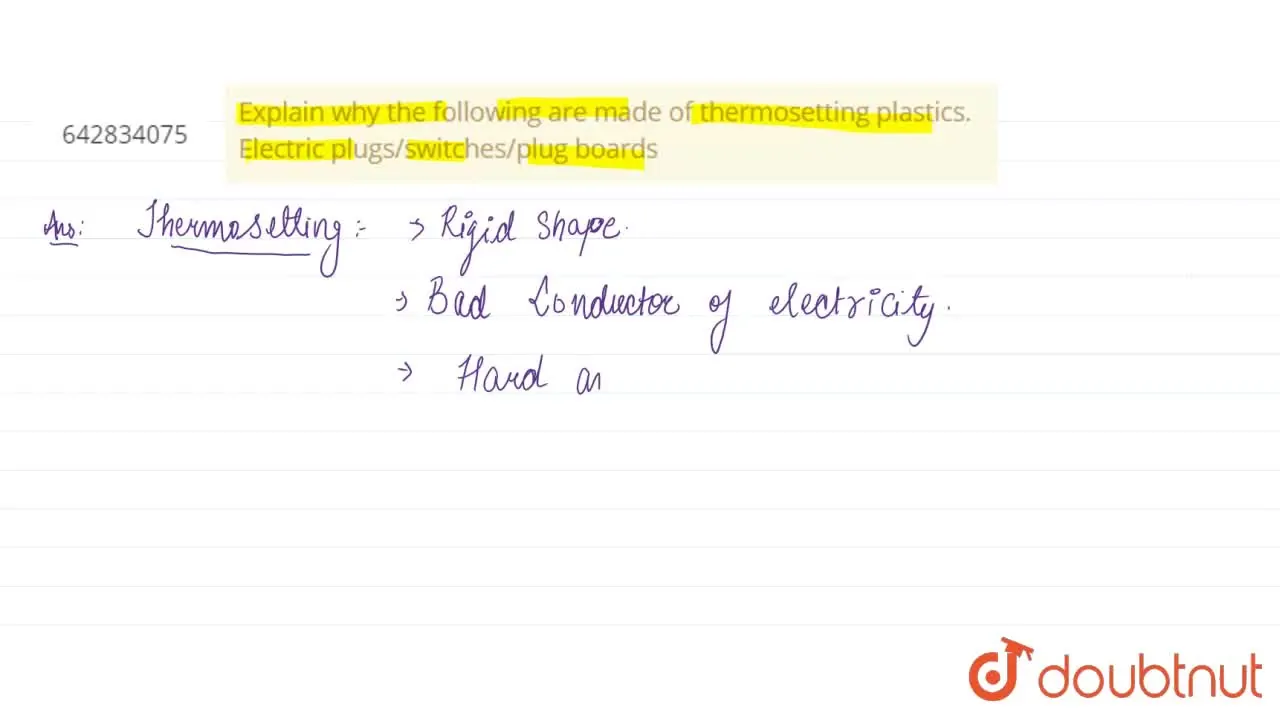 Explain why the following are made of thermosetting plastics.
642834075
Electric plugs/switches/plug boards
Ans: Thermosetting :- → Rigid Shape.
→ Bad Conductor of electricity.
→ Hard an
doubtnut